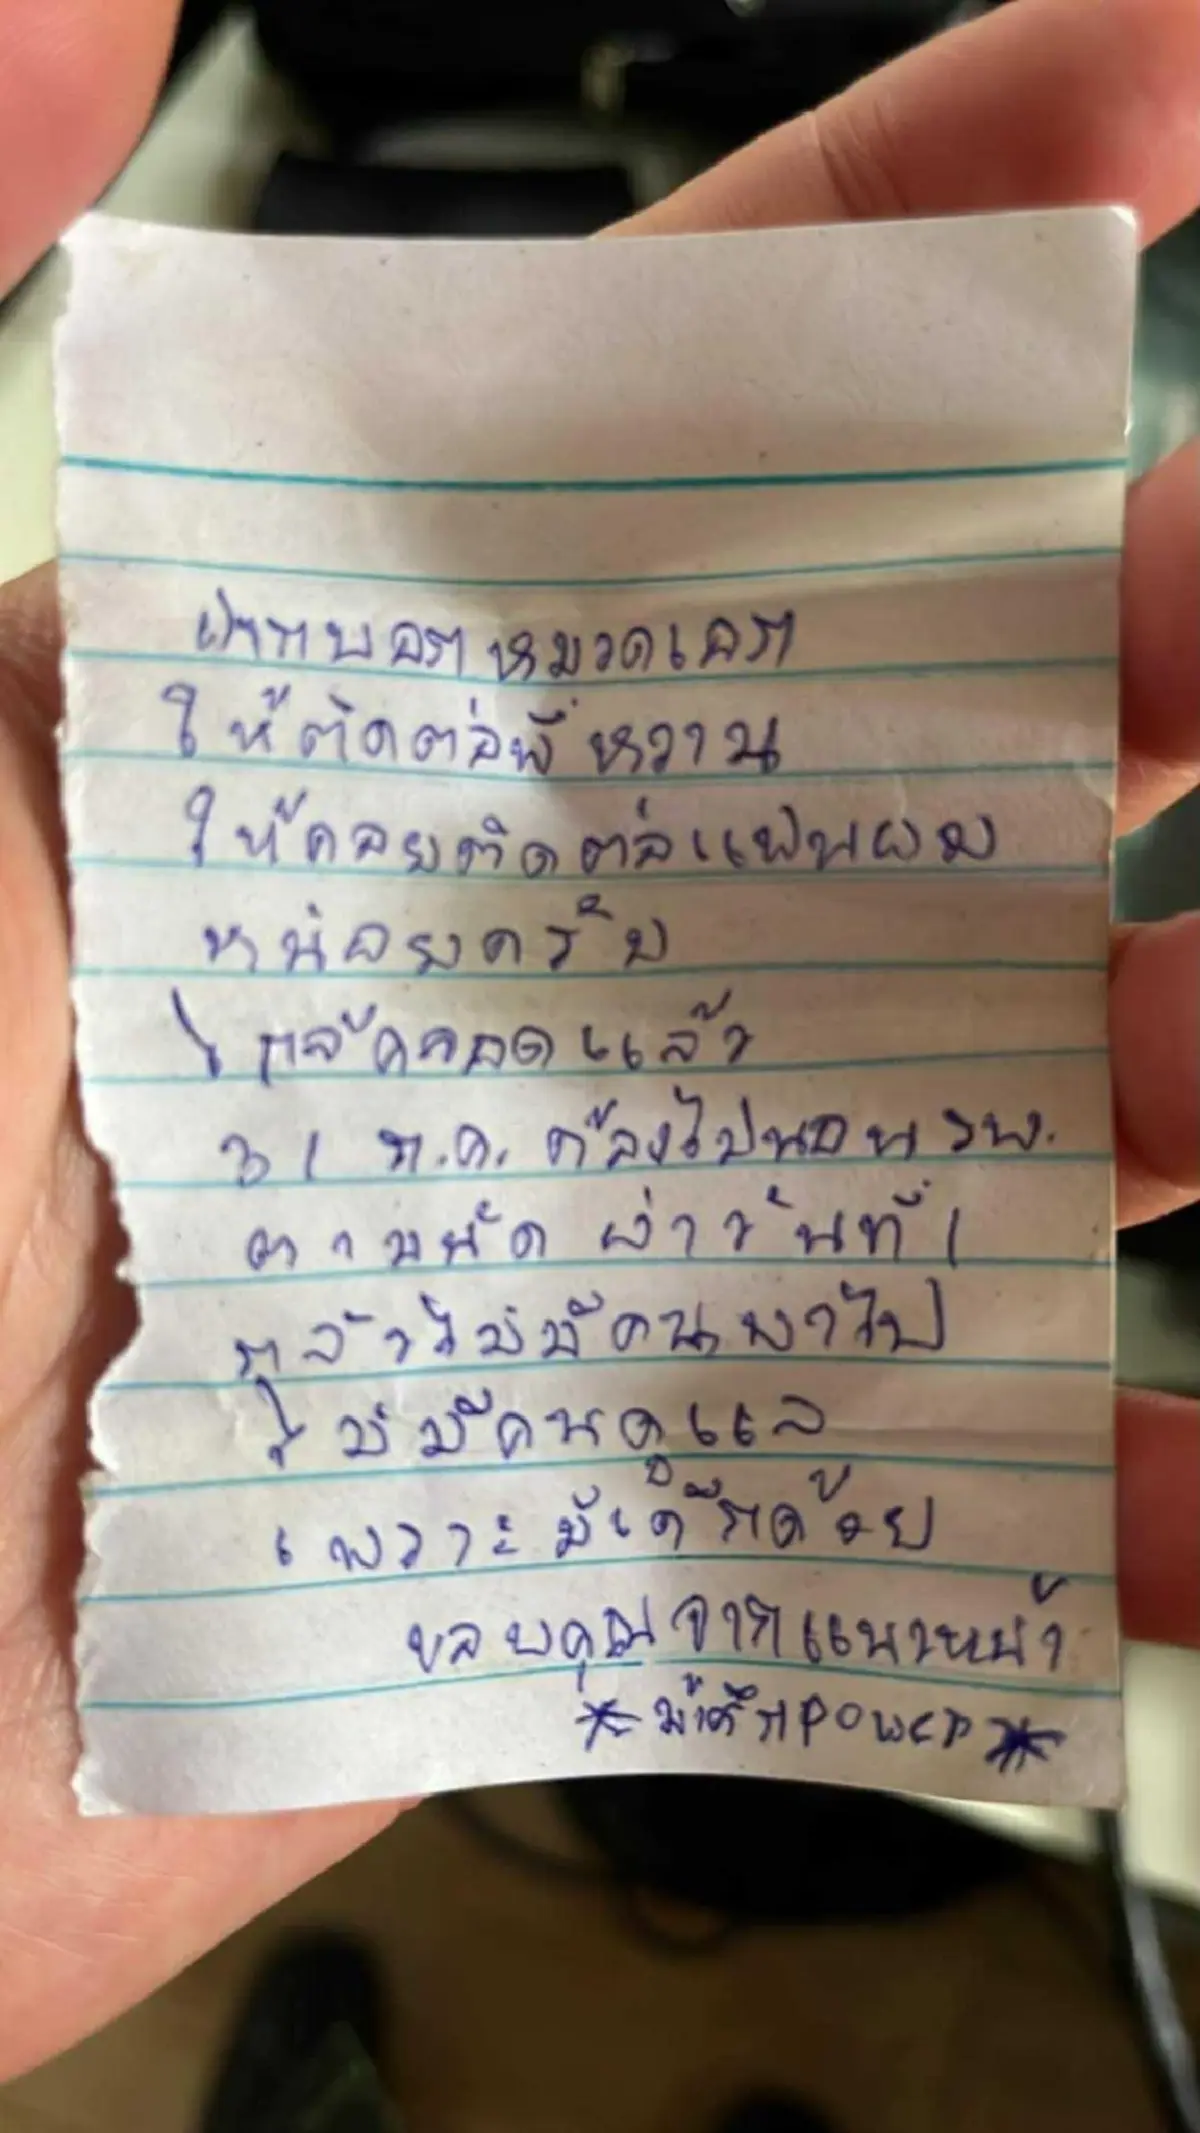 ฝากบอกหมวดเอก
ให้ติดต่อพี่หวาน
ให้คอยติดต่อแฟนผม
หน่อยครับ
ใกล้คลอดแล้ว
31 ก.ค. ต้องไปนอน รพ.
ตามนัด ผ่าวันที่ 1
กลัวไม่มีคนพาไป
ไม่มีคนดูแล
เพราะมีเด็กด้วย
ขอบคุณจากแนวหน้า
* power *